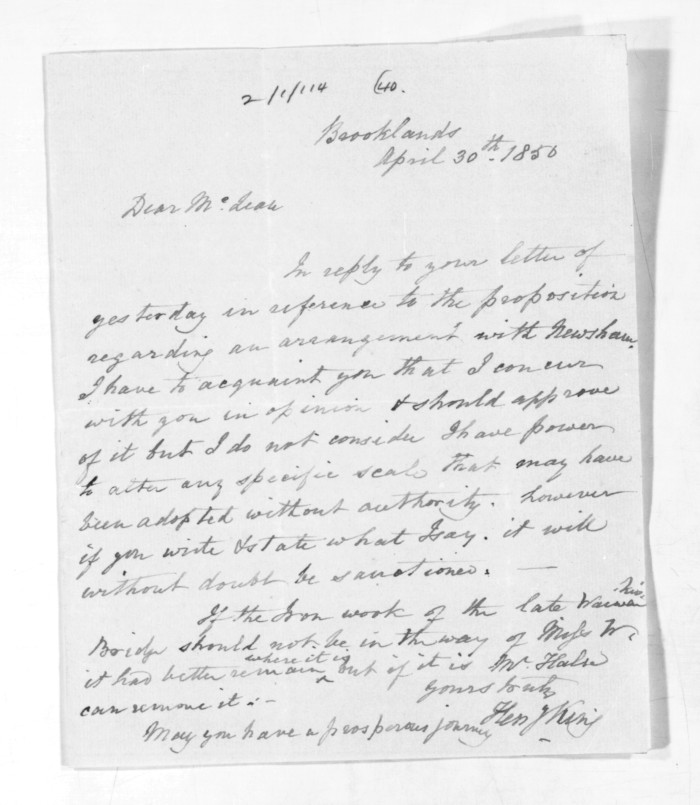 2/1/114 (40.
Brooklands
April 30th. 1850
Dear Mc.Lean
In reply to your letter of
yesterday in reference to the proposition
regarding an arrangement with Newsham.
I have to acquaint you that I concur
with you in opinion & should approve
of it but I do not consider I have power
to alter any specific scale that may have
been adopted without authority. however
if you write & state what I say. it will
without doubt be sanctioned. —
If the Iron work of the late
Bridge should not be in the way of W.
it had better remain where it is but if it is Mr. Halse
can remove it. –
yours truly
Hen y King
May you have a prosperous journey